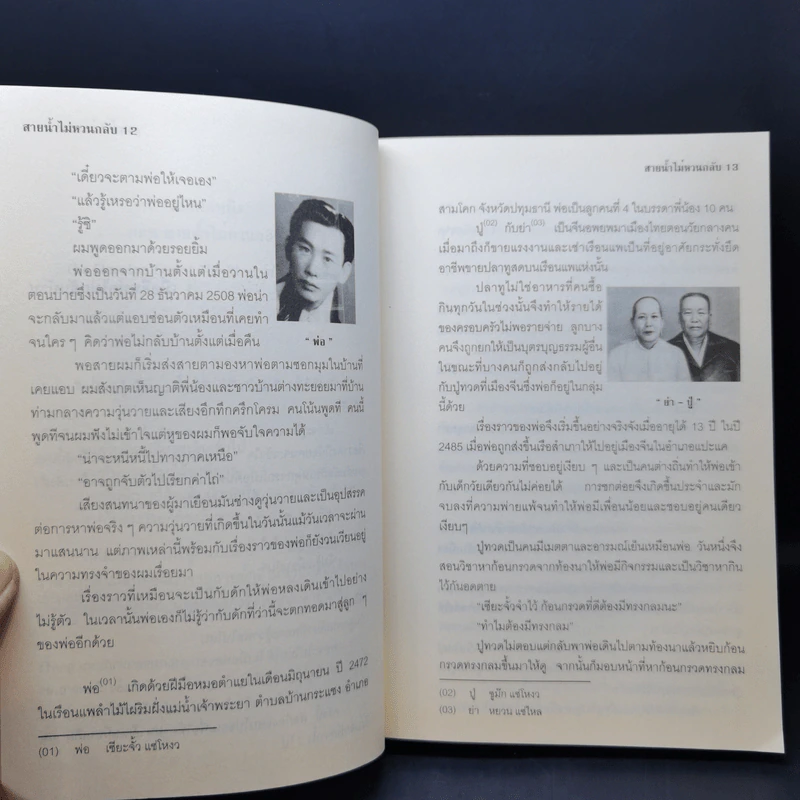 สายน้ำไม่หวนกลับ 12
"เดี๋ยวจะตามพ่อให้เจอเอง"
"แล้วรู้เหรอว่าพ่ออยู่ไหน"
"รู้ซิ"
ผมพูดออกมาด้วยรอยยิ้ม
พ่อออกจากบ้านตั้งแต่เมื่อวานใน
ตอนบ่ายซึ่งเป็นวันที่ 28 ธันวาคม 2508 พ่อน่า
จะกลับมาแล้วแต่แอบซ่อนตัวเหมือนที่เคยทำ
จนใคร ๆ คิดว่าพ่อไม่กลับบ้านตั้งแต่เมื่อคืน
" พ่อ "
พอสายผมก็เริ่มส่งสายตามองหาพ่อตามซอกมุมในบ้านที่
เคยแอบ ผมสังเกตเห็นญาติพี่น้องและชาวบ้านต่างทะยอยมาที่บ้าน
ท่ามกลางความวุ่นวายและเสียงอึกทึกครึกโครม คนโน้นพูดที คนนี้
พูดทีจนผมฟังไม่เข้าใจแต่หูของผมก็พอจับใจความได้
"น่าจะหนีหนี้ไปทางภาคเหนือ"
"อาจถูกจับตัวไปเรียกค่าไถ่"
เสียงสนทนาของผู้มาเยือนมันช่างดูวุ่นวายและเป็นอุปสรรค
ต่อการหาพ่อจริง ๆ ความวุ่นวายที่เกิดขึ้นในวันนั้นแม้วันเวลาจะผ่าน
มาแสนนาน แต่ภาพเหล่านี้พร้อมกับเรื่องราวของพ่อก็ยังวนเวียนอยู่
ในความทรงจำของผมเรื่อยมา
เรื่องราวที่เหมือนจะเป็นกับดักให้พ่อหลงเดินเข้าไปอย่าง
ไม่รู้ตัว ในเวลานั้นพ่อเองก็ไม่รู้ว่ากับดักที่ว่านี้จะตกทอดมาสู่ลูก ๆ
ของพ่ออีกด้วย
พ่อ(01) เกิดด้วยฝีมือหมอตำแยในเดือนมิถุนายน ปี 2472
ในเรือนแพลำไม้ไผ่ริมฝั่งแม่น้ำเจ้าพระยา ตำบลบ้านกระแชง อำเภอ
(01) พ่อ เซียะจั้ว แซ่โหงว
สายน้ำไม่หวนกลับ 13
สามโคก จังหวัดปทุมธานี พ่อเป็นลูกคนที่ 4 ในบรรดาพี่น้อง 10 คน
ปู่(02) กับย่า(03) เป็นจีนอพยพมาเมืองไทยตอนวัยกลางคน
เมื่อมาถึงก็ขายแรงงานและเช่าเรือนแพเป็นที่อยู่อาศัยกระทั่งยึด
อาชีพขายปลาทูสดบนเรือนแพแห่งนั้น
ปลาทูไม่ใช่อาหารที่คนซื้อ
กินทุกวันในช่วงนั้นจึงทำให้รายได้
ของครอบครัวไม่พอรายจ่าย ลูกบาง
คนจึงถูกยกให้เป็นบุตรบุญธรรมผู้อื่น
ในขณะที่บางคนก็ถูกส่งกลับไปอยู่
กับปู่ทวดที่เมืองจีนซึ่งพ่อก็อยู่ในกลุ่ม
นี้ด้วย
" ย่า - ปู่ "
เรื่องราวของพ่อจึงเริ่มขึ้นอย่างจริงจังเมื่ออายุได้ 13 ปี ในปี
2485 เมื่อพ่อถูกส่งขึ้นเรือสำเภาให้ไปอยู่เมืองจีนในอำเภอแปะแค
ด้วยความที่ชอบอยู่เงียบ ๆ และเป็นคนต่างถิ่นทำให้พ่อเข้า
กับเด็กวัยเดียวกันไม่ค่อยได้ การชกต่อยจึงเกิดขึ้นประจำและมัก
จบลงที่ความพ่ายแพ้จนทำให้พ่อมีเพื่อนน้อยและชอบอยู่คนเดียว
เงียบๆ
ปู่ทวดเป็นคนมีเมตตาและอารมณ์เย็นเหมือนพ่อ วันหนึ่งจึง
สอนวิชาหาก้อนกรวดจากท้องนาให้พ่อมีกิจกรรมและเป็นวิชาหากิน
ไว้กันอดตาย
"เซียะจั้วจำไว้ ก้อนกรวดที่ดีต้องมีทรงกลมนะ"
"ทำไมต้องมีทรงกลม"
ปู่ทวดไม่ตอบแต่กลับพาพ่อเดินไปตามท้องนาแล้วหยิบก้อน
กรวดทรงกลมขึ้นมาให้ดู จากนั้นก็มอบหน้าที่หาก้อนกรวดทรงกลม
(02) ปู่ ชูมัก แซ่โหงว
(03) ย่า หยวน แซ่ไหล